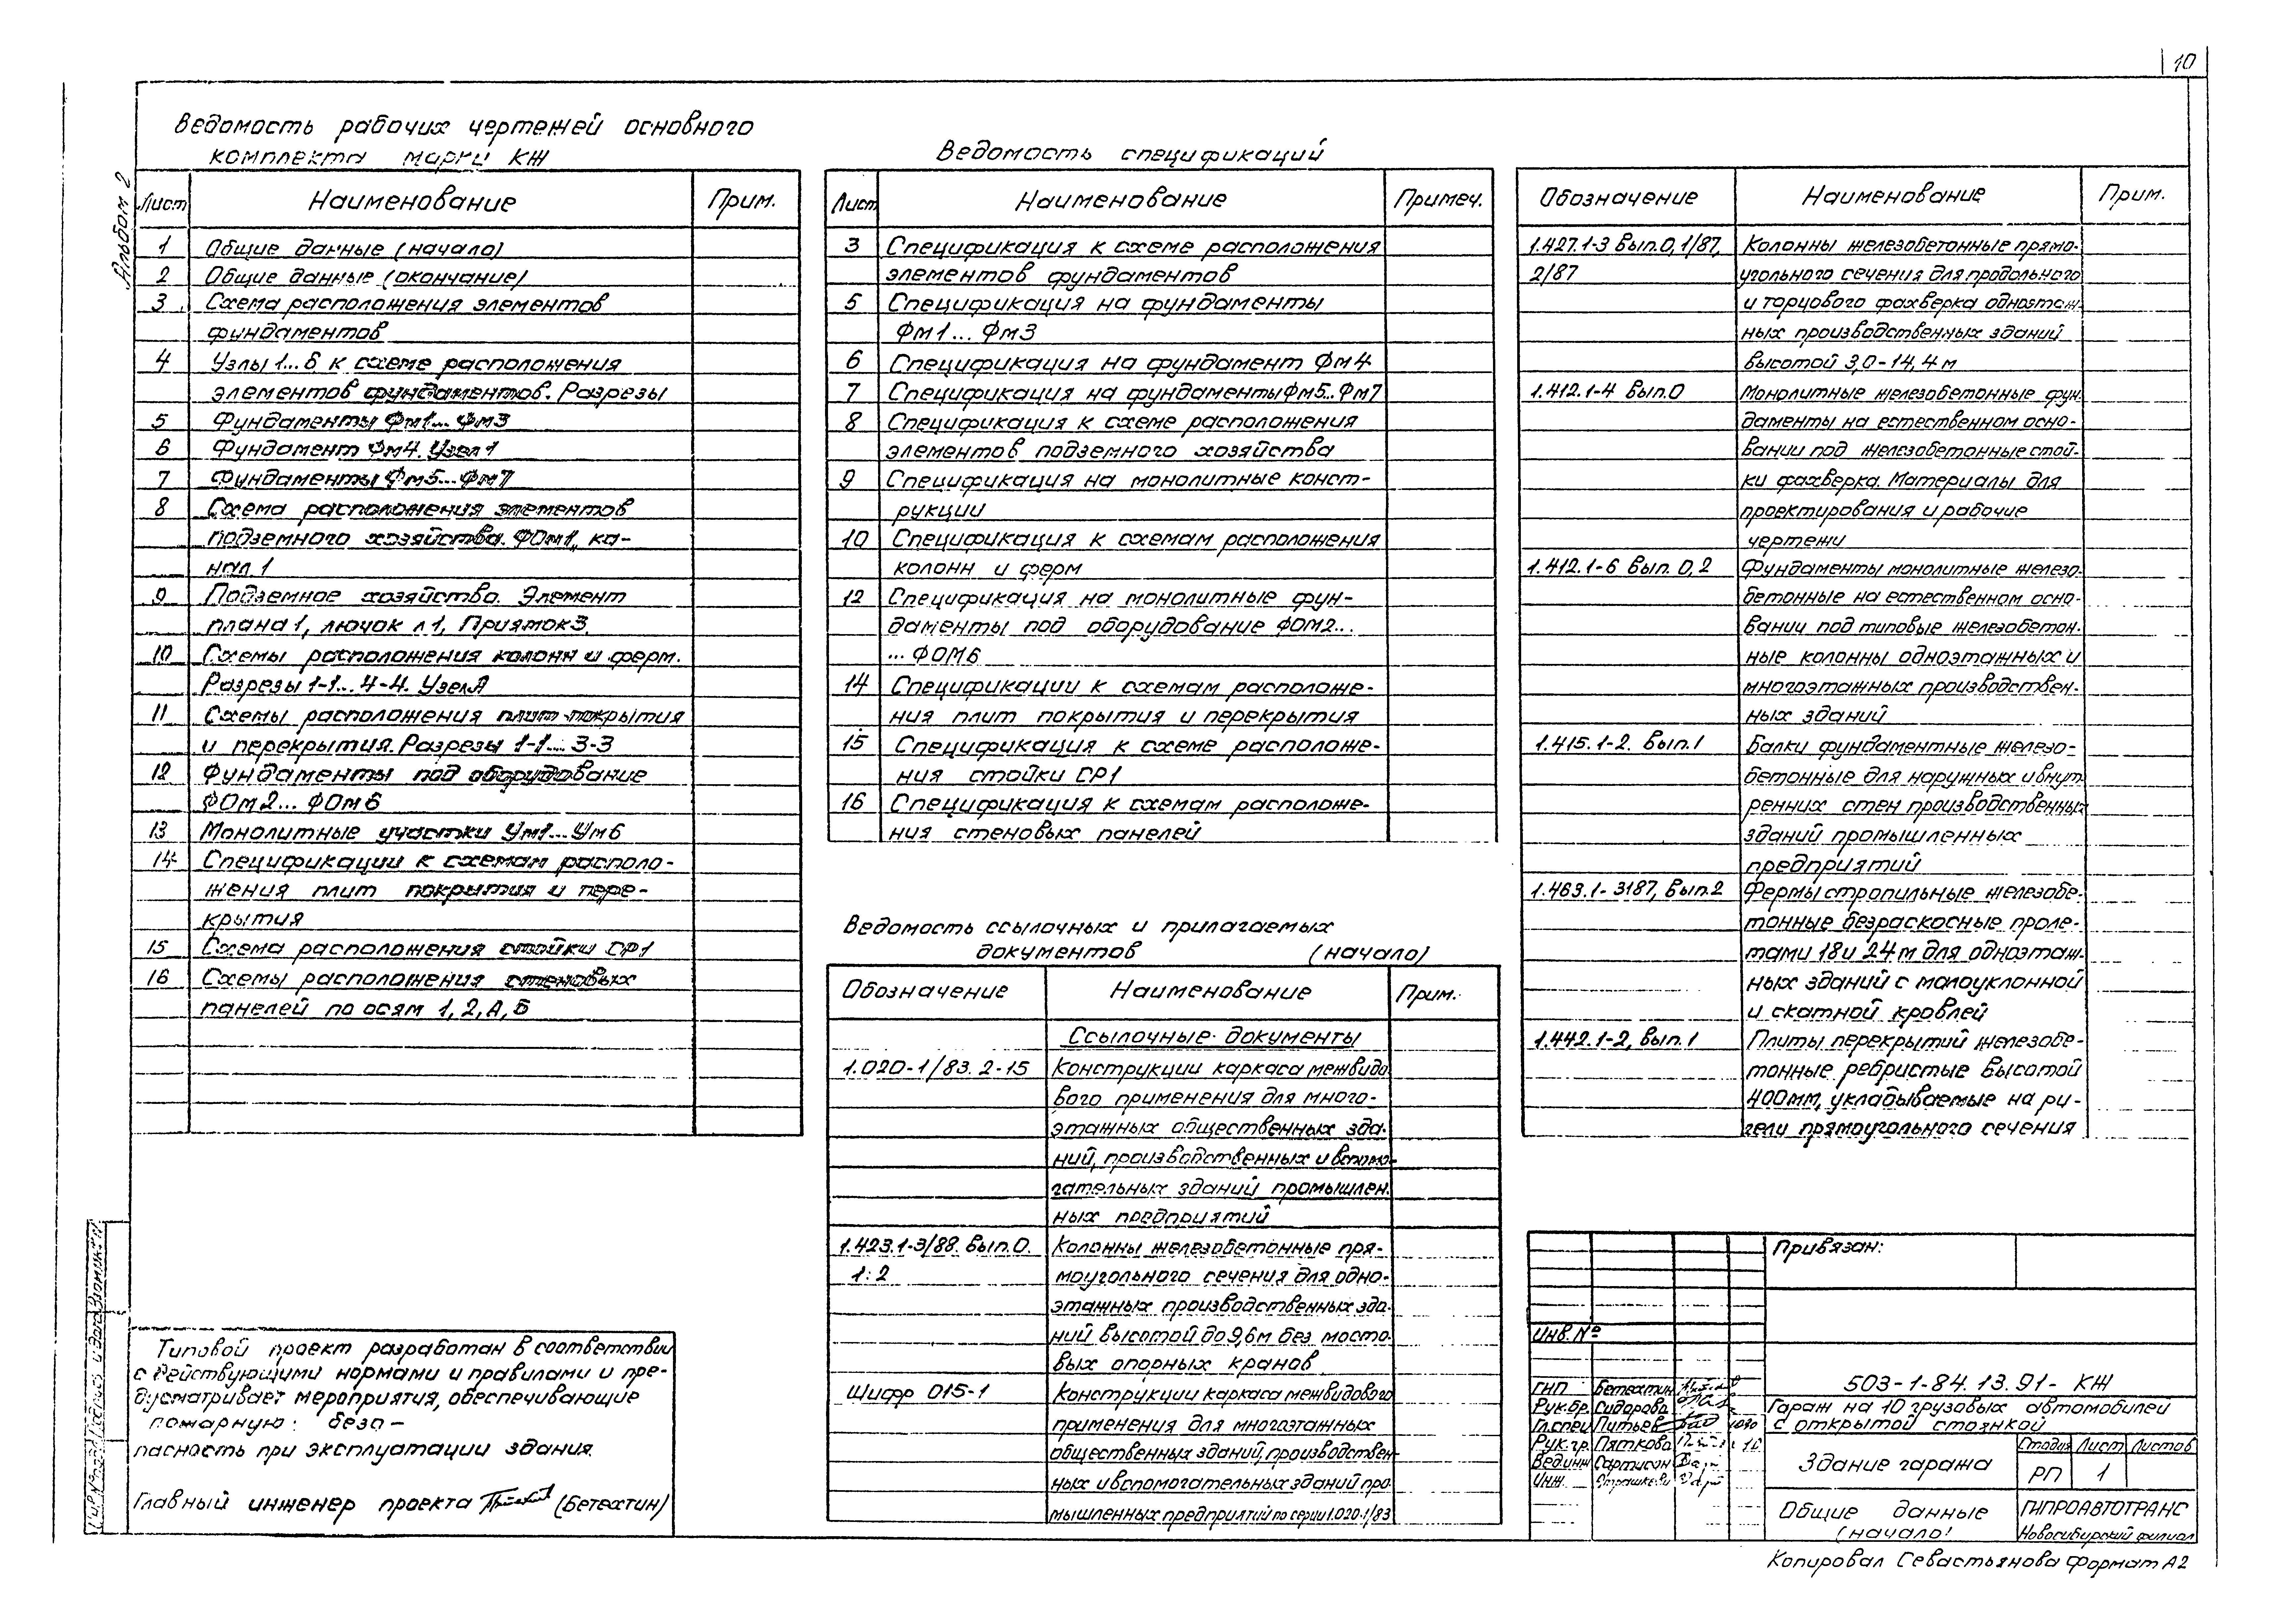 10
Альбом 2
Ведомость рабочих чертежей основного
комплекта марки КЖ
Лист Наименование Прим.
1 Общие данные (начало)
2 Общие данные (окончание)
3 Схема расположения элементов
фундаментов
4 Узлы 1...6 к схеме расположения
элементов фундаментов. Разрезы
5 Фундаменты Фм1... Фм3
6 Фундамент Фм4. Узел 1
7 Фундаменты Фм5...Фм7
8 Схема расположения элементов
подземного хозяйства. ФОм1, ка-
нал 1
9 Подземное хозяйство. Элемент
плана 1, лючок л1, Приямок 3.
10 Схемы расположения колонн и ферм.
Разрезы 1-1... 4-4. Узел А
11 Схемы расположения плит покрытия
и перекрытия. Разрезы 1-1... 3-3
12 Фундаменты под оборудование
ФОм2... ФОм6
13 Монолитные участки Ум1...Ум6
14 Спецификации к схемам располо-
жения плит покрытия и пере-
крытия
15 Схема расположения стойки СР1
16 Схемы расположения стеновых
панелей по осям 1, 2, А, Б
Типовой проект разработан в соответствии
с действующими нормами и правилами и пре-
дусматривает мероприятия, обеспечивающие
пожарную безо-
пасность при эксплуатации здания.
Главный инженер проекта (Бетехтин)
Ведомость спецификаций
Лист Наименование Примеч.
3 Спецификация к схеме расположения
элементов фундаментов
5 Спецификация на фундаменты
Фм1... Фм3
6 Спецификация на фундамент Фм4
7 Спецификация на фундаменты Фм5..Фм7
8 Спецификация к схеме расположения
элементов подземного хозяйства
9 Спецификация на монолитные конст-
рукции
10 Спецификация к схемам расположения
колонн и ферм
12 Спецификация на монолитные фун-
даменты под оборудование ФОМ2...
... ФОМ6
14 Спецификации к схемам расположе-
ния плит покрытия и перекрытия
15 Спецификация к схеме расположе-
ния стойки СР1
16 Спецификация к схемам расположе-
ния стеновых панелей
Ведомость ссылочных и прилагаемых
документов (начало)
Обозначение Наименование Прим.
Ссылочные документы
1.020-1/83. 2-15 Конструкции каркаса межвидо
вого применения для много-
этажных общественных зда-
ний, производственных и вспомо-
гательных зданий промышлен.
ных предприятий
1.423.1-3/88. Вып.0. Колонны железобетонные пря-
1; 2 моугольного сечения для одно-
этажных производственных зда-
ний высотой до 9,6м без мосто-
вых опорных кранов
Шифр 015-1 Конструкции каркаса межвидового
применения для многоэтажных
общественных зданий, производствен-
ных и вспомогательных зданий про
мышленных предприятий по серии 1.020-1/83
Обозначение Наименование Прим.
1.427.1-3 Вып.0, 1/87, Колонны железобетонные прямо-
2/87 угольного сечения для продольного
и торцового фахверка одноэтаж-
ных производственных зданий
высотой 3,0-14,4 м
1.412.1-4 Вып.0 Монолитные железобетонные фун
даменты на естественном осно-
вании под железобетонные стой-
ки фахверка. Материалы для
проектирования и рабочие
чертежи
1.412.1-6 Вып. 0, 2 Фундаменты монолитные железо-
бетонные на естественном осно-
вании под типовые железобетон-
ные колонны одноэтажных и
многоэтажных производствен-
ных зданий
1.415.1-2. Вып.1 Балки фундаментные железо-
бетонные для наружных и внут
ренних стен производственных
зданий промышленных
предприятий
1.463.1-3187, Вып.2 Фермы стропильные железобе-
тонные безраскосные проле-
тами 18 и 24 м для одноэтаж-
ных зданий с малоуклонной
и скатной кровлей
1.442.1-2, Вып. 1 Плиты перекрытий железобе-
тонные ребристые высотой
400мм, укладываемые на ри-
гели прямоугольного сечения
Привязан:
Инв. №
503-1-84.13.91- КЖ
ГНП Бетехтин
Рук.бр. Сидорова
Гл.спец Питьев
Рук.гр. Пяткова
Вед.инж Сартисон
Инж.
Гараж на 10 грузовых автомобилей
с открытой стоянкой
Здание гаража
Стадия Лист Листов
РП 1
Общие данные
(начало)
ГИПРОАВТОТРАНС
Новосибирский филиал
Копировал Севастьянова Формат А2